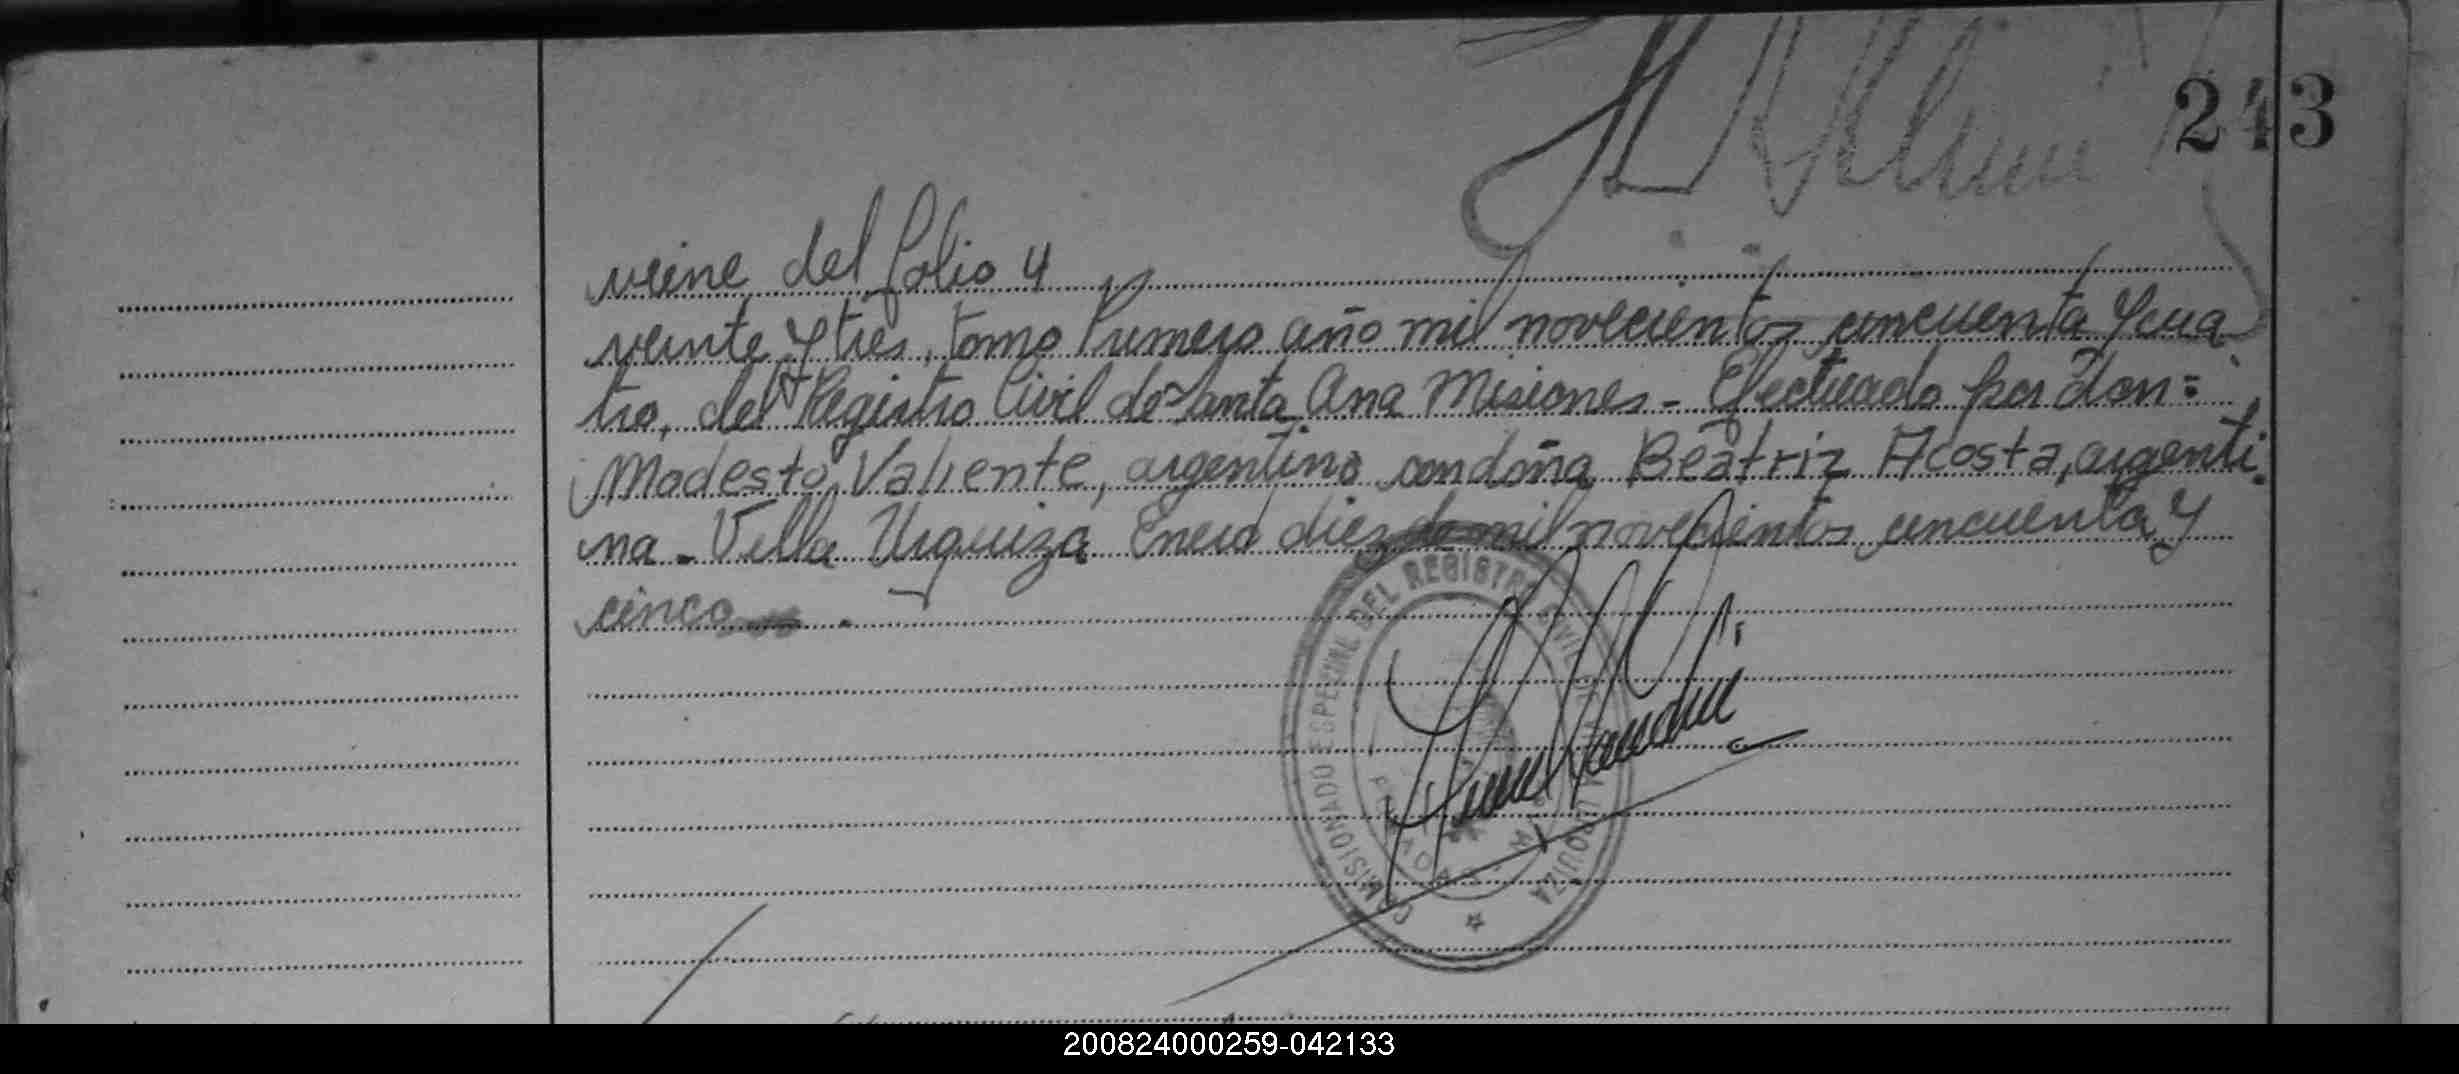 243
viene del folio 4
veinte y tres, tomo Primero año mil novecientos cincuenta y cua
tro, del Registro Civil de Santa Ana Misiones - Efectuado por don =
Modesto Valiente, argentino con doña Beatriz Acosta, argenti
na - Villa Urquiza Enero diez de mil novecientos cincuenta y
cinco
COMISIONADO ESPECIAL DEL REGISTRO CIVIL DE VILLA URQUIZA
200824000259-042133